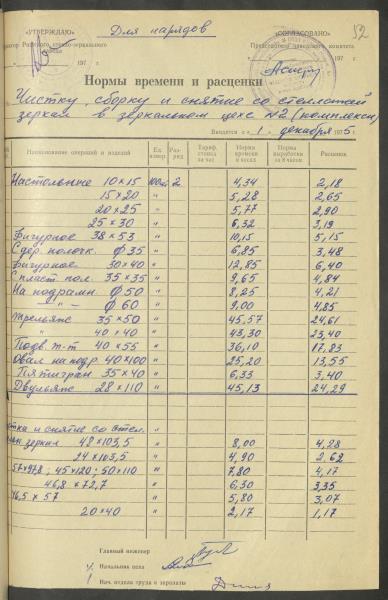 52
Для нарядов
«УТВЕРЖДАЮ»
«СОГЛАСОВАНО»
197 г.
197 г.
Нормы времени и расценки
Чистку, сборку и снятие со стеллажей
зеркал в зеркальном цехе №2 (комплексн)
Вводятся с «1» декабря 1975 г.
Наименование операций и изделий Ед. измер. Раз-ряд Тариф. ставка за час Норма времени в часах Норма выработки за 8 часов Расценок
Настольные 10×15 100шт 2 4,34 2,18
15×20 " 5,28 2,65
20×25 " 5,77 2,90
25×30 " 6,32 3,19
Фигурное 38×53 " 10,15 5,15
С дер. полочк. ф 35 " 6,85 3,48
Фигурное 30×40 " 12,85 6,40
С пласт. пол. 35×35 " 9,65 4,84
На подрамн. ф 50 " 8,25 4,21
" – ф 60 " 9,00 4,85
Трельяж 35×50 " 45,57 24,61
" 40×40 " 43,30 23,40
Подв. т-т 40×55 " 36,10 17,83
Овал на подр. 40×100 " 25,20 13,55
Пятигран 35×40 " 6,33 3,40
Двульяж 28×110 " 45,13 24,29
стка и снятие со стел. "
зеркал 48×103,5 " 8,00 4,28
24×103,5 " 4,90 2,62
57×97,8; 45×120; 50×110 " 7,80 4,17
46,8×72,7 " 6,30 3,35
46,5×57 " 5,80 3,07
20×40 " 2,17 1,17
Главный инженер
Начальник цеха
Нач. отдела труда и зарплаты